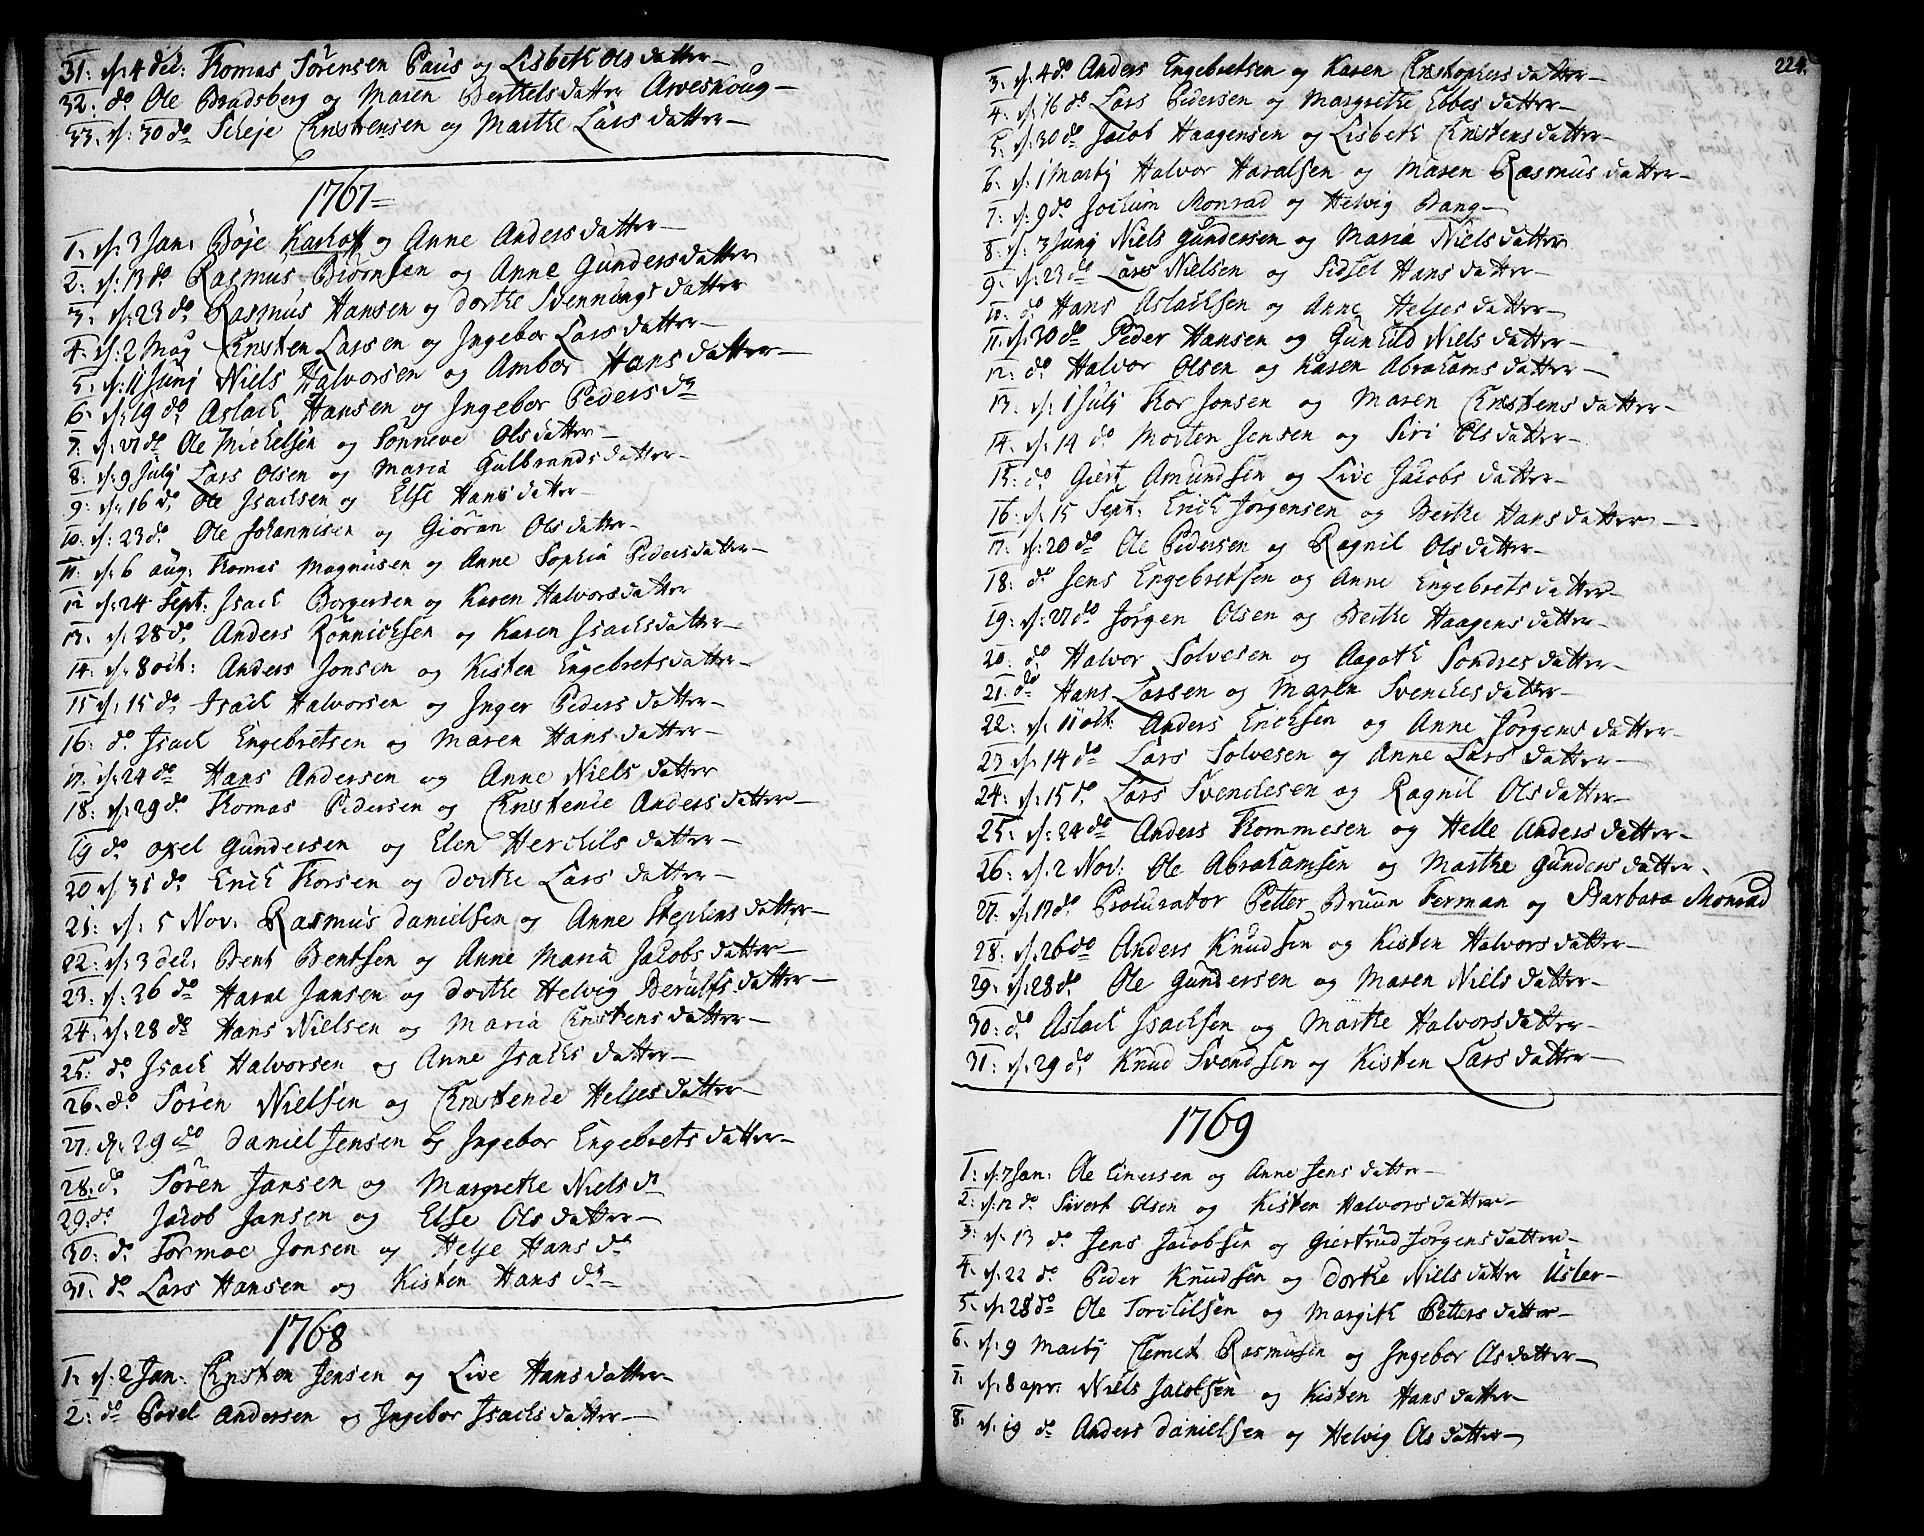 31: d: 4 dec: Thomas Sörensen Paus og Lisbeth Olsdatter
32: do Ole Bradsberg og Maren Berthelsdatter Arveskoug
33: d: 30 do Christensen og Marthe Larsdatter
1767
1: d: 3 Jan: Böje og Anne Andersdatter
2: d: 13 do Rasmus Biörnsen og Anne Gundersdatter
3: d: 23 do Rasmus Hansen og Dorthe Svenningsdatter
4: d: 2 Maj Christen Larsen og Ingebor Larsdatter
5: d: 11 Junj Niels Halvorsen og Ambor Hansdatter
6: d: 19 do Aslach Hansen og Ingebor Pedersdr
7: d: 27 do Ole Michelsen og Sönneve Olsdatter
8: d: 9 Julj Lars Olsen og Maria Gulbrandsdatter
9: d: 16 do Ole Isachsen og Else Hansdatter
10: d: 23 do Ole Johannisen og Giöran Olsdatter
11: d: 6 aug: Thomas Magnusen og Anne Sophia Pedersdatter
12 d: 24 Sept: Isach Borgersen og Karen Halvorsdatter
13: d: 28 do Anders Rönnichsen og Karen Isachsdatter
14: d: 8 oct: Anders Jonsen og Kisten Engebretsdatter
15 d: 15 do Isach Halvorsen og Inger Pedersdatter
16: do Isach Engebretsen og Maren Hansdatter
17: d: 24 do Hans Andersen og Anne Nielsdatter
18: d: 29 do Thomas Pedersen og Christence Andersdatter
19 do Axel Gundersen og Elen Herchilsdatter
20 d: 31 do Erich Thorsen og Dorthe Larsdatter
21: d: 5 Nov: Rasmus Danielsen og Anne Stephensdatter
22: d: 3 dec: Bent Bentsen og Anne Maria Jacobsdatter
23: d: 26 do Jansen og Dorthe Helvig Berulfsdatter
24: d: 28 do Hans Nielsen og Maria Christensdatter
25: do Isach Halvorsen og Anne Isachsdatter
26: do Sören Nielsen og Christence Heljesdatter
27: d: 29 do Daniel Jensen og Ingebor Engebretsdatter
28: do Sören Jansen og Margrethe Nielsdr
29: do Jacob Jansen og Else Olsdatter
30: do Tormoe Jonsen og Helje Hansdr
31: do Lars Hansen og Kisten Hansdr
1768
1: d: 2 Jan: Christen Jensen og Live Hansdatter
2: do Povel Andersen og Ingebor Isachsdatter
224.
3: d: 4 do Anders Engebretsen og Karen Christophersdatter
4: d: 16 do Lars Pedersen og Margrethe Ebbesdatter
5: d: 30 do Jacob Haagensen og Lisbeth Christensdatter
6: d: 1 Martij Halvor Haralsen og Maren Rasmusdatter
7: d: 9 do Jochum Monrad og Helvig Bang
8: d: 3 Junj Niels Gundersen og Maria Nielsdatter
9: d: 23 do Lars Nielsen og Sidsel Hansdatter
10: do Hans Aslachsen og Anne Heljesdatter
11: d: 30 do Peder Hansen og Gunhild Nielsdatter
12: do Halvor Olsen og Karen Abrahamsdatter
13: d: 1 Julj Thor Jonsen og Maren Christensdatter
14: d: 14 do Morten Jensen og Siri Olsdatter
15: do Giert Amundsen og Live Jacobsdatter
16: d: 15 Sept: Erich Jörgensen og Berthe Hansdatter
17: d: 20 do Ole Pedersen og Ragnil Olsdatter
18: do Jens Engebretsen og Anne Engebretsdatter
19: d: 27 do Jörgen Olsen og Berthe Haagensdatter
20: do Halvor Solvesen og Aagoth Sondresdatter
21: do Hans Larsen og Maren Svenchesdatter
22: d: 11 oct: Anders Erichsen og Anne Jörgensdatter
23 d: 14 do Lars Solvesen og Anne Larsdatter
24: d: 15 do Lars Svenchesen og Ragnil Olsdatter
25: d: 24 do Anders Thommesen og Helle Andersdatter
26: d: 2 Nov: Ole Abrahamsen og Marthe Gundersdatter
27: d: 17 do Procurator Petter Bruun Ferman og Barbara Monrad
28: d: 26 do Anders Knudsen og Kisten Halvorsdatter
29: d: 28 do Ole Gundersen og Maren Nielsdatter
30: do Aslach Isachsen og Marthe Halvorsdatter
31: d: 29 do Knud Svendsen og Kisten Larsdatter
1769
1: d: 7 Jan: Ole Einersen og Anne Jensdatter
2: d: 12 do Sivert Olsen og Kisten Halvorsdatter
3: d: 13 do Jens Jacobsen og Giertrud Jörgensdatter
4: d: 22 do Peder Knudsen og Dorthe Nielsdatter Usler
5: d: 28 do Ole Torchilsen og Margith Pettersdatter
6: d: 9 Martij Clemet Rasmusen og Ingebor Olsdatter
7: d: 8 apr: Niels Jacobsen og Kisten Hansdatter
8: d: 19 do Anders Danielsen og Helvig Olsdatter